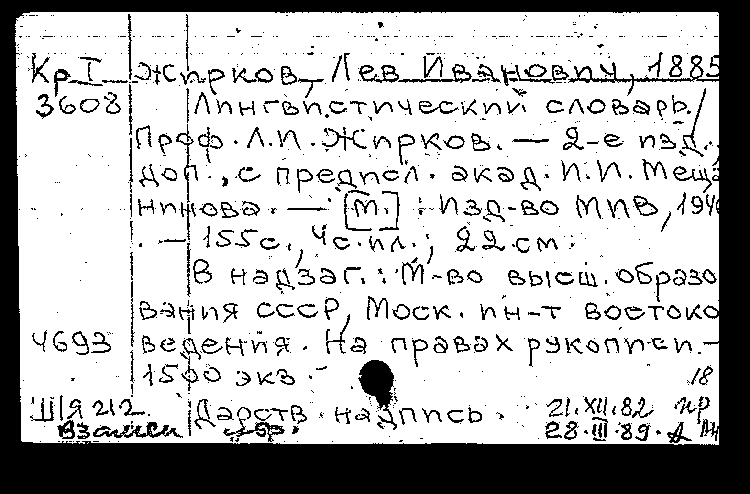 Кр I Жирков, Лев Иванович, 1885
3608 Лингвистический словарь /
Проф. Л.И. Жирков. — 2-е изд.,
доп., с предисл. акад. И.И. Меща
нинова. — [М.] : Изд-во МИВ, 194
. — 155 с., 4 с. ил. ; 22 см.
В надзаг.: М-во высш. образо
вания СССР, Моск. ин-т востоко
4693 ведения. На правах рукописи. —
1500 экз. 18
Ш/Я 212 Дарств. надпись. 21.XII.82 пр
Взамен 28.III.89.